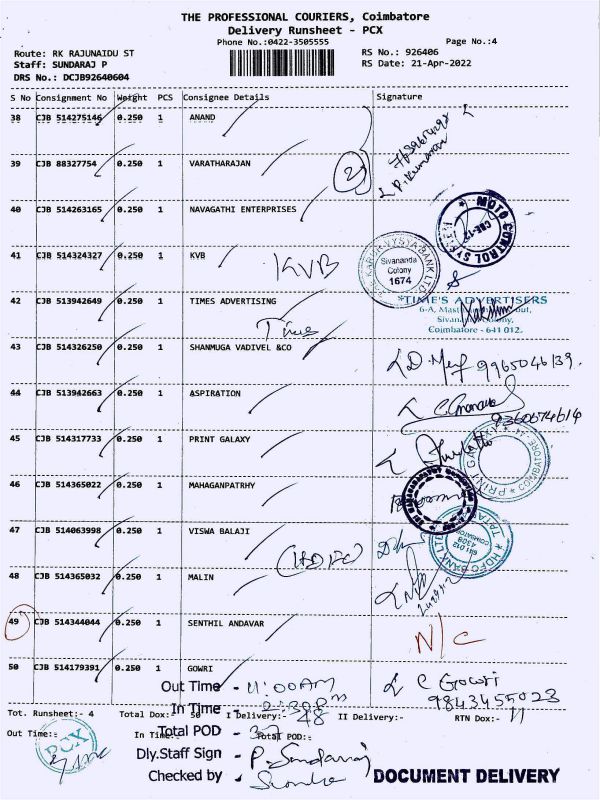 THE PROFESSIONAL COURIERS, Coimbatore
Delivery Runsheet - PCX
Phone No.:0422-3505555
Page No.:4
Route: RK RAJUNAIDU ST
RS No.: 926406
Staff: SUNDARAJ P
RS Date: 21-Apr-2022
DRS No.: DCJB92640604
S No Consignment No Weight PCS Consignee Details Signature
38 CJB 514275146 0.250 1 ANAND
39 CJB 88327754 0.250 1 VARATHARAJAN
2
P. Kumaran
40 CJB 514263165 0.250 1 NAVAGATHI ENTERPRISES
MOTO CONTROL SYSTEM
CBE-12
41 CJB 514324327 0.250 1 KVB
KVB
KARUR VYSYA BANK LTD.
Sivananda
Colony
1674
42 CJB 513942649 0.250 1 TIMES ADVERTISING
Times
*TIME'S ADVERTISERS
Coimbatore - 641 012.
43 CJB 514326250 0.250 1 SHANMUGA VADIVEL &CO
9965046139.
44 CJB 513942663 0.250 1 ASPIRATION
9360674614
45 CJB 514317733 0.250 1 PRINT GALAXY
PRINT GALAXY
COIMBATORE
46 CJB 514365022 0.250 1 MAHAGANPATRHY
47 CJB 514063998 0.250 1 VISWA BALAJI
(HDFC)
HDFC BANK LTD
TATA
48 CJB 514365032 0.250 1 MALIN
49 CJB 514344044 0.250 1 SENTHIL ANDAVAR
N/C
50 CJB 514179391 0.250 1 GOWRI
C Gowri
9843455023
Out Time - 11:00AM
In Time - 2:30 Pm
Tot. Runsheet:- 4 Total Dox:- 50 I Delivery:- 48 II Delivery:- RTN Dox:- 11
Out Time:- In Time:- Total POD:-
PCX
Total POD - 37
Dly.Staff Sign - P. Sundaraj
Checked by -
DOCUMENT DELIVERY